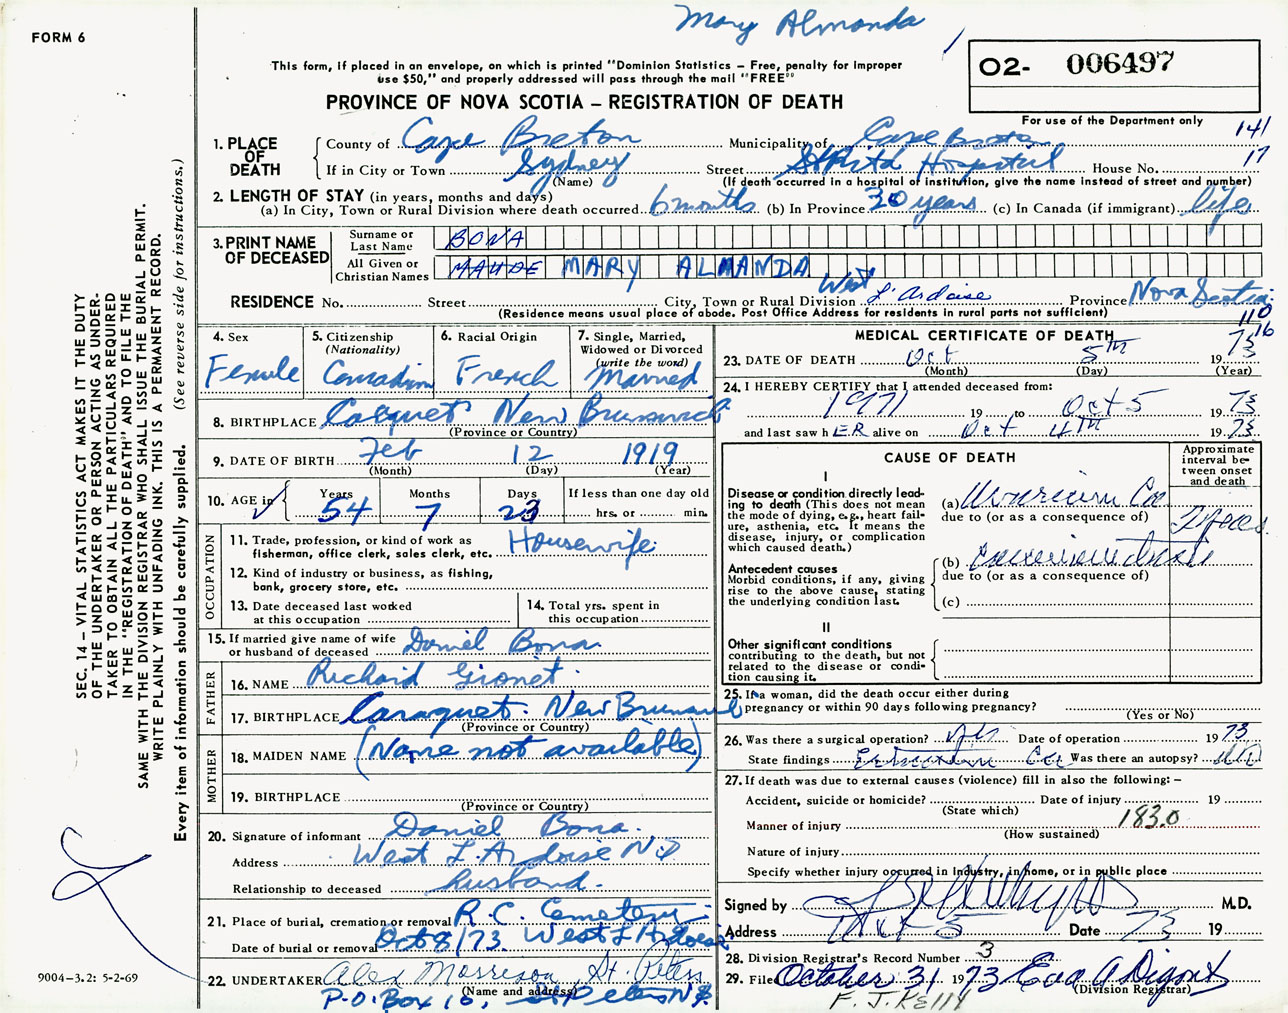 Mary Almanda
FORM 6
This form, if placed in an envelope, on which is printed "Dominion Statistics – Free, penalty for improper
use $50," and properly addressed will pass through the mail "FREE"
PROVINCE OF NOVA SCOTIA – REGISTRATION OF DEATH
O2- 006497
For use of the Department only
141
17
1. PLACE OF DEATH
County of Cape Breton Municipality of Cape Breton
If in City or Town Sydney Street Hospital House No.
(Name) (If death occurred in a hospital of institution, give the name instead of street and number)
2. LENGTH OF STAY (in years, months and days)
(a) In City, Town or Rural Division where death occurred 6 months (b) In Province 30 years (c) In Canada (if immigrant) life
3. PRINT NAME OF DECEASED
Surname or Last Name BONA
All Given or Christian Names MAUDE MARY ALMANDA
RESIDENCE No. Street City, Town or Rural Division West L'Ardoise Province Nova Scotia
(Residence means usual place of abode. Post Office Address for residents in rural parts not sufficient)
110
16
4. Sex Female
5. Citizenship (Nationality) Canadian
6. Racial Origin French
7. Single, Married, Widowed or Divorced (write the word) Married
8. BIRTHPLACE New Brunswick
(Province or Country)
9. DATE OF BIRTH Feb 12 1919
(Month) (Day) (Year)
10. AGE in Years 54 Months 7 Days 23 If less than one day old
hrs. or min.
OCCUPATION
11. Trade, profession, or kind of work as
fisherman, office clerk, sales clerk, etc. Housewife
12. Kind of industry or business, as fishing,
bank, grocery store, etc.
13. Date deceased last worked
at this occupation
14. Total yrs. spent in
this occupation
15. If married give name of wife
or husband of deceased Daniel Bona
FATHER
16. NAME Richard Gionet
17. BIRTHPLACE Caraquet. New Brunswick
(Province or Country)
MOTHER
18. MAIDEN NAME (Name not available)
19. BIRTHPLACE
(Province or Country)
20. Signature of informant Daniel Bona.
Address West L'Ardoise N.S
Relationship to deceased husband.
21. Place of burial, cremation or removal R.C. Cemetery
Date of burial or removal Oct 8/73 West L'Ardoise
22. UNDERTAKER Alex Morrison St. Peters
(Name and address)
P.O. Box 16, St Peters N.S.
MEDICAL CERTIFICATE OF DEATH
23. DATE OF DEATH Oct 5TH 1973
(Month) (Day) (Year)
24. I HEREBY CERTIFY that I attended deceased from:
1971 19 to Oct 5 1973
and last saw hER alive on Oct 4TH 1973
CAUSE OF DEATH
Approximate interval between onset and death
I
Disease or condition directly leading to death (This does not mean the mode of dying, e.g., heart failure, asthenia, etc. It means the disease, injury, or complication which caused death.)
(a)
due to (or as a consequence of)
Antecedent causes
Morbid conditions, if any, giving rise to the above cause, stating the underlying condition last.
(b)
due to (or as a consequence of)
(c)
II
Other significant conditions
contributing to the death, but not related to the disease or condition causing it.
25. If a woman, did the death occur either during
pregnancy or within 90 days following pregnancy?
(Yes or No)
26. Was there a surgical operation? yes Date of operation 1973
State findings Ca Was there an autopsy? NO
27. If death was due to external causes (violence) fill in also the following: –
Accident, suicide or homicide? Date of injury 19
(State which)
Manner of injury 183.0
(How sustained)
Nature of injury
Specify whether injury occurred in industry, in home, or in public place
Signed by M.D.
Address Oct 5 Date 73 19
28. Division Registrar's Record Number 3
29. Filed October 31 1973 Eva A Digout
(Division Registrar)
F. J. KELLY
SEC. 14 – VITAL STATISTICS ACT MAKES IT THE DUTY
OF THE UNDERTAKER OR PERSON ACTING AS UNDERTAKER
TO OBTAIN ALL THE PARTICULARS REQUIRED
IN THE "REGISTRATION OF DEATH" AND TO FILE THE
SAME WITH THE DIVISION REGISTRAR WHO SHALL ISSUE THE BURIAL PERMIT.
WRITE PLAINLY WITH UNFADING INK. THIS IS A PERMANENT RECORD.
Every item of information should be carefully supplied. (See reverse side for instructions.)
9004–3.2: 5-2-69